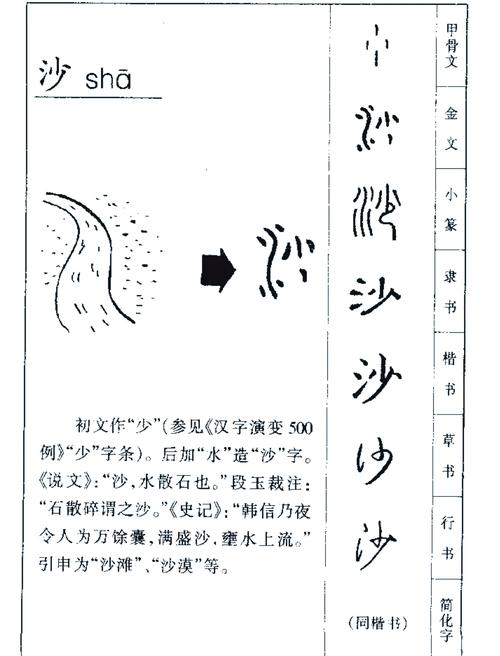 沙 shā
初文作“少”(参见《汉字演变500
例》“少”字条)。后加“水”造“沙”字。
《说文》:“沙,水散石也。”段玉裁注:
“石散碎谓之沙。”《史记》:“韩信乃夜
令人为万馀囊,满盛沙,壅水上流。”
引申为“沙滩”、“沙漠”等。
甲骨文
金文
小篆
沙 隶书
沙 楷书
沙 草书
沙 行书
(同楷书) 简化字